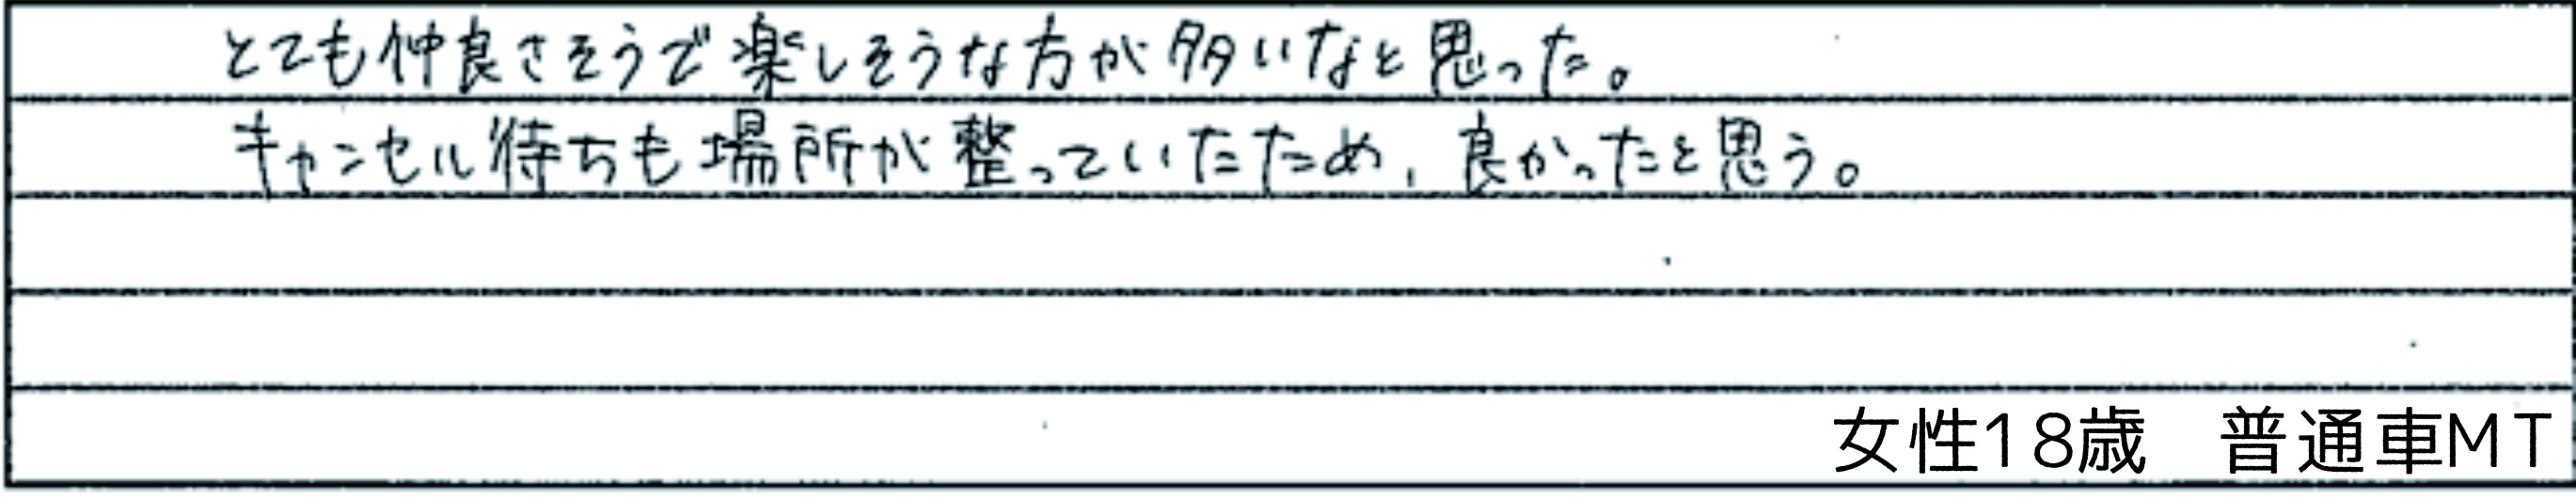 とても仲良さそうで楽しそうな方が多いなと思った。
キャンセル待ちも場所が整っていたため、良かったと思う。
女性18歳　普通車MT